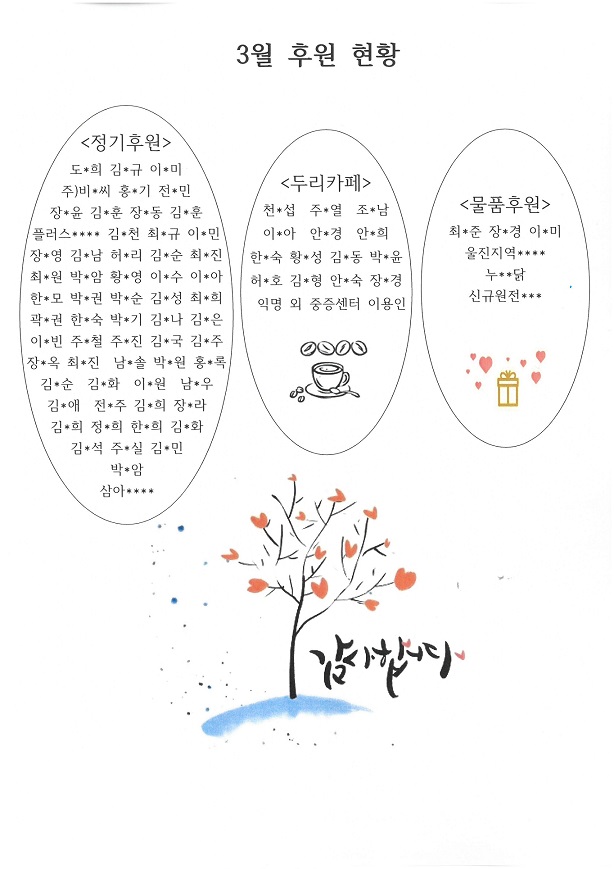 3월 후원 현황
<정기후원>
도*희 김*규 이*미
주)비*씨 홍*기 전*민
장*윤 김*훈 장*동 김*훈
플러스**** 김*천 최*규 이*민
장*영 김*남 허*리 김*순 최*진
최*원 박*암 황*영 이*수 이*아
한*모 박*권 박*순 김*성 최*희
곽*권 한*숙 박*기 김*나 김*은
이*빈 주*철 주*진 김*국 김*주
장*옥 최*진 남*솔 박*원 홍*록
김*순 김*화 이*원 남*우
김*애 전*주 김*희 장*라
김*희 정*희 한*희 김*화
김*석 주*실 김*민
박*암
삼아****
<두리카페>
천*섭 주*열 조*남
이*아 안*경 안*희
한*숙 황*성 김*동 박*윤
허*호 김*형 안*숙 장*경
익명 외 중증센터 이용인
<물품후원>
최*준 장*경 이*미
울진지역****
누**닭
신규원전***
감사합니다